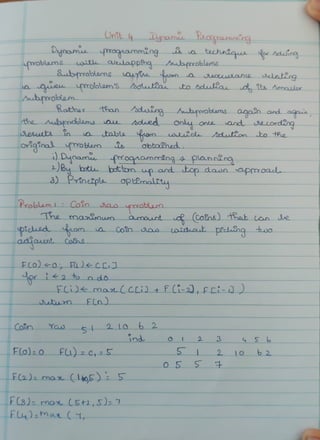 Unit 4 Dynamic Programming
Dynamic programming is a technique for solving
problems with overlapping subproblems
Subproblems arise from a recurrence relating
a given problem's solution to solution of its smaller
subproblem.
Rather than solving subproblems again and again
the subproblems are solved only one and recording
results in a table from which solution to the
original problem is obtained.
1) Dynamic programming & planning
2) By both bottom up and top down approach
3) Principle optimality
Problem 1 : Coin row problem
The maximum amount of (coins) that can be
picked from a coin row without picking two
adjacent coins
F(0) ← 0; F(1) ← C[1]
for i ← 2 to n do
F(i) ← max (C[i] + F(i-2), F(i-1))
return F(n)
Coin row 5 1 2 10 6 2
ind 0 1 2 3 4 5 6
F(0) = 0 F(1) = c1 = 5 5 1 2 10 6 2
0 5 5 7
F(2) = max (1+0, 5) = 5
F(3) = max (5+2, 5) = 7
F(4) = max ( 7,